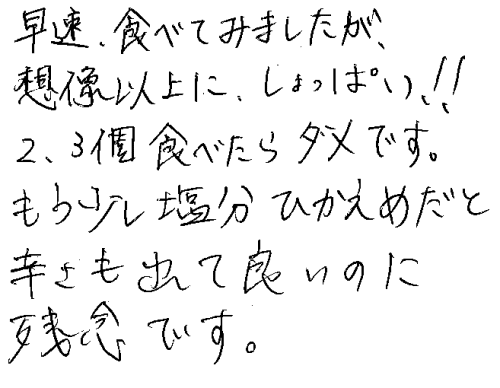 早速、食べてみましたが、
想像以上に、しょっぱい!!
2、3個食べたらダメです。
もう少し塩分ひかえめだと
辛さも出て良いのに
残念です。